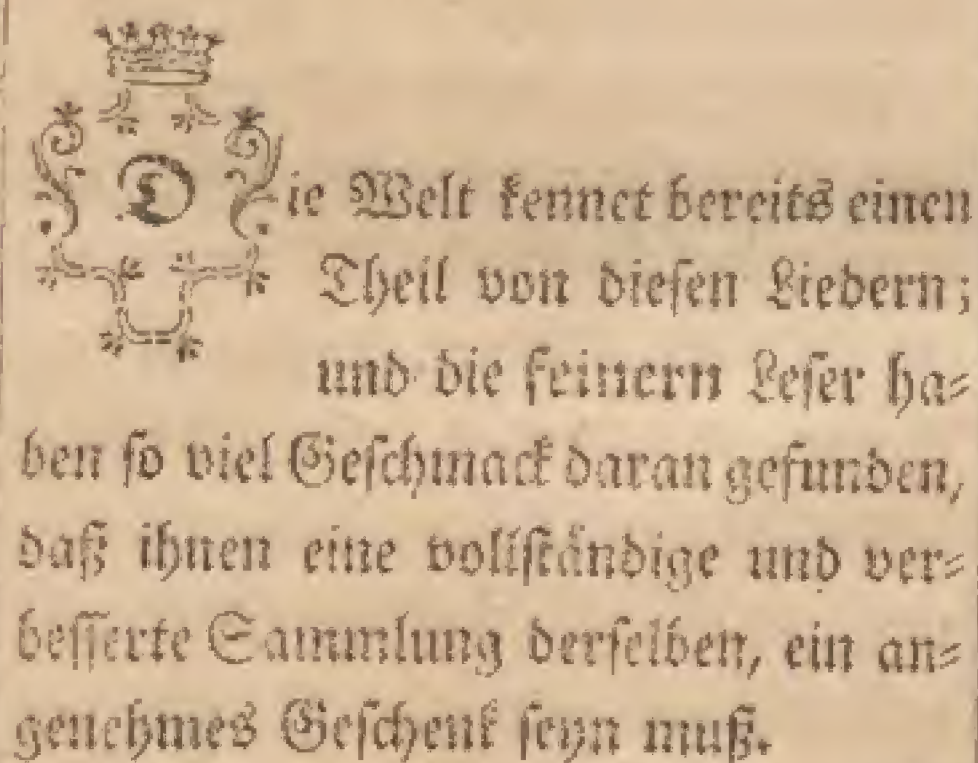 Die Welt kennet bereits einen
Theil von diesen Liedern;
und die feinern Leser ha-
ben so viel Geschmack daran gefunden,
daß ihnen eine vollständige und ver-
besserte Sammlung derselben, ein an-
genehmes Geschenk seyn muß.